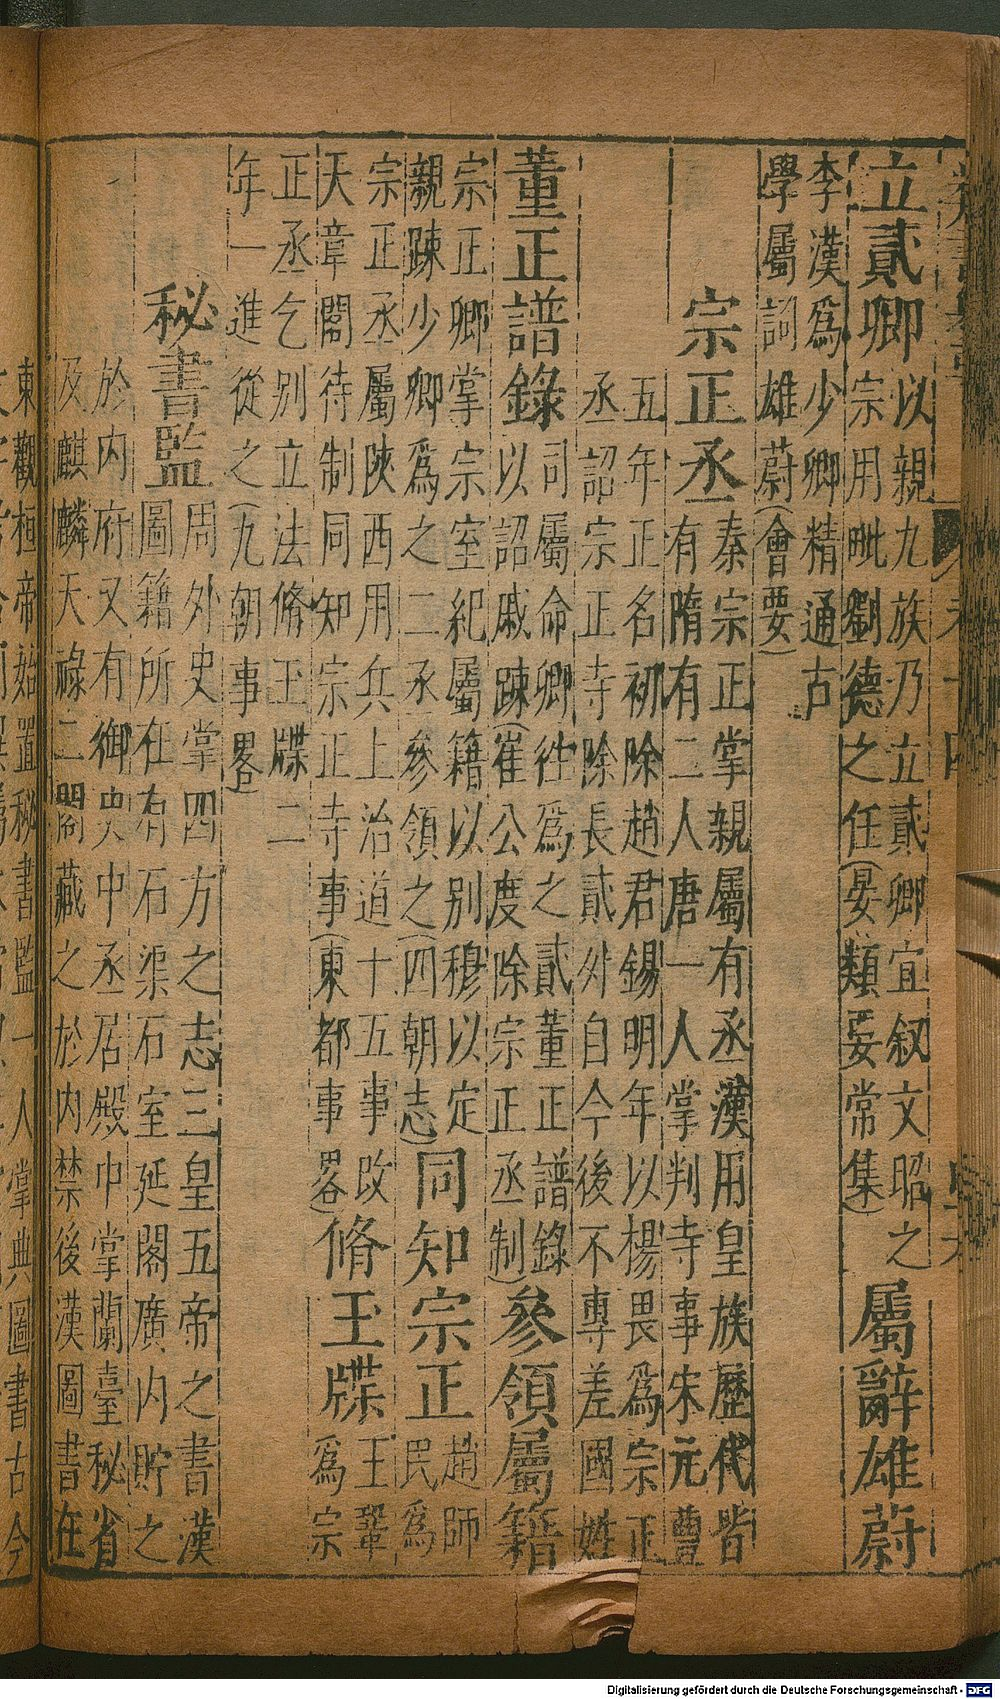 立貳卿
以親九族乃立貳卿宜叙文昭之
宗用毗劉德之任(晏類要常集)
屬辭雄蔚
李漢爲少卿精通古
學屬詞雄蔚(會要)
宗正丞
秦宗正掌親屬有丞漢用皇族歷代皆
有隋有二人唐一人掌判寺事宋元豐
五年正名初除趙君錫明年以楊畏爲宗正
丞詔宗正寺除長貳外自今後不專差國姓
董正譜錄
司屬命卿往爲之貳董正譜錄
以詔戚踈(崔公度除宗正丞制)
參領屬籍
宗正卿掌宗室紀屬籍以别穆以定
親踈少卿爲之二丞參領之(四朝志)
同知宗正
趙師
民爲
宗正丞屬陜西用兵上治道十五事改
天章閣待制同知宗正寺事(東都事畧)
脩玉牒
王鞏
爲宗
正丞乞别立法脩玉牒二
年一進從之(九朝事畧)
秘書監
周外史掌四方之志三皇五帝之書漢
圖籍所在有石渠石室延閣廣内貯之
於内府又有御史中丞居殿中掌蘭臺秘省
及麒麟天祿二閣藏之於内禁後漢圖書在
東觀桓帝始置秘書監一人掌典圖書古今
Digitalisierung gefördert durch die Deutsche Forschungsgemeinschaft - DFG